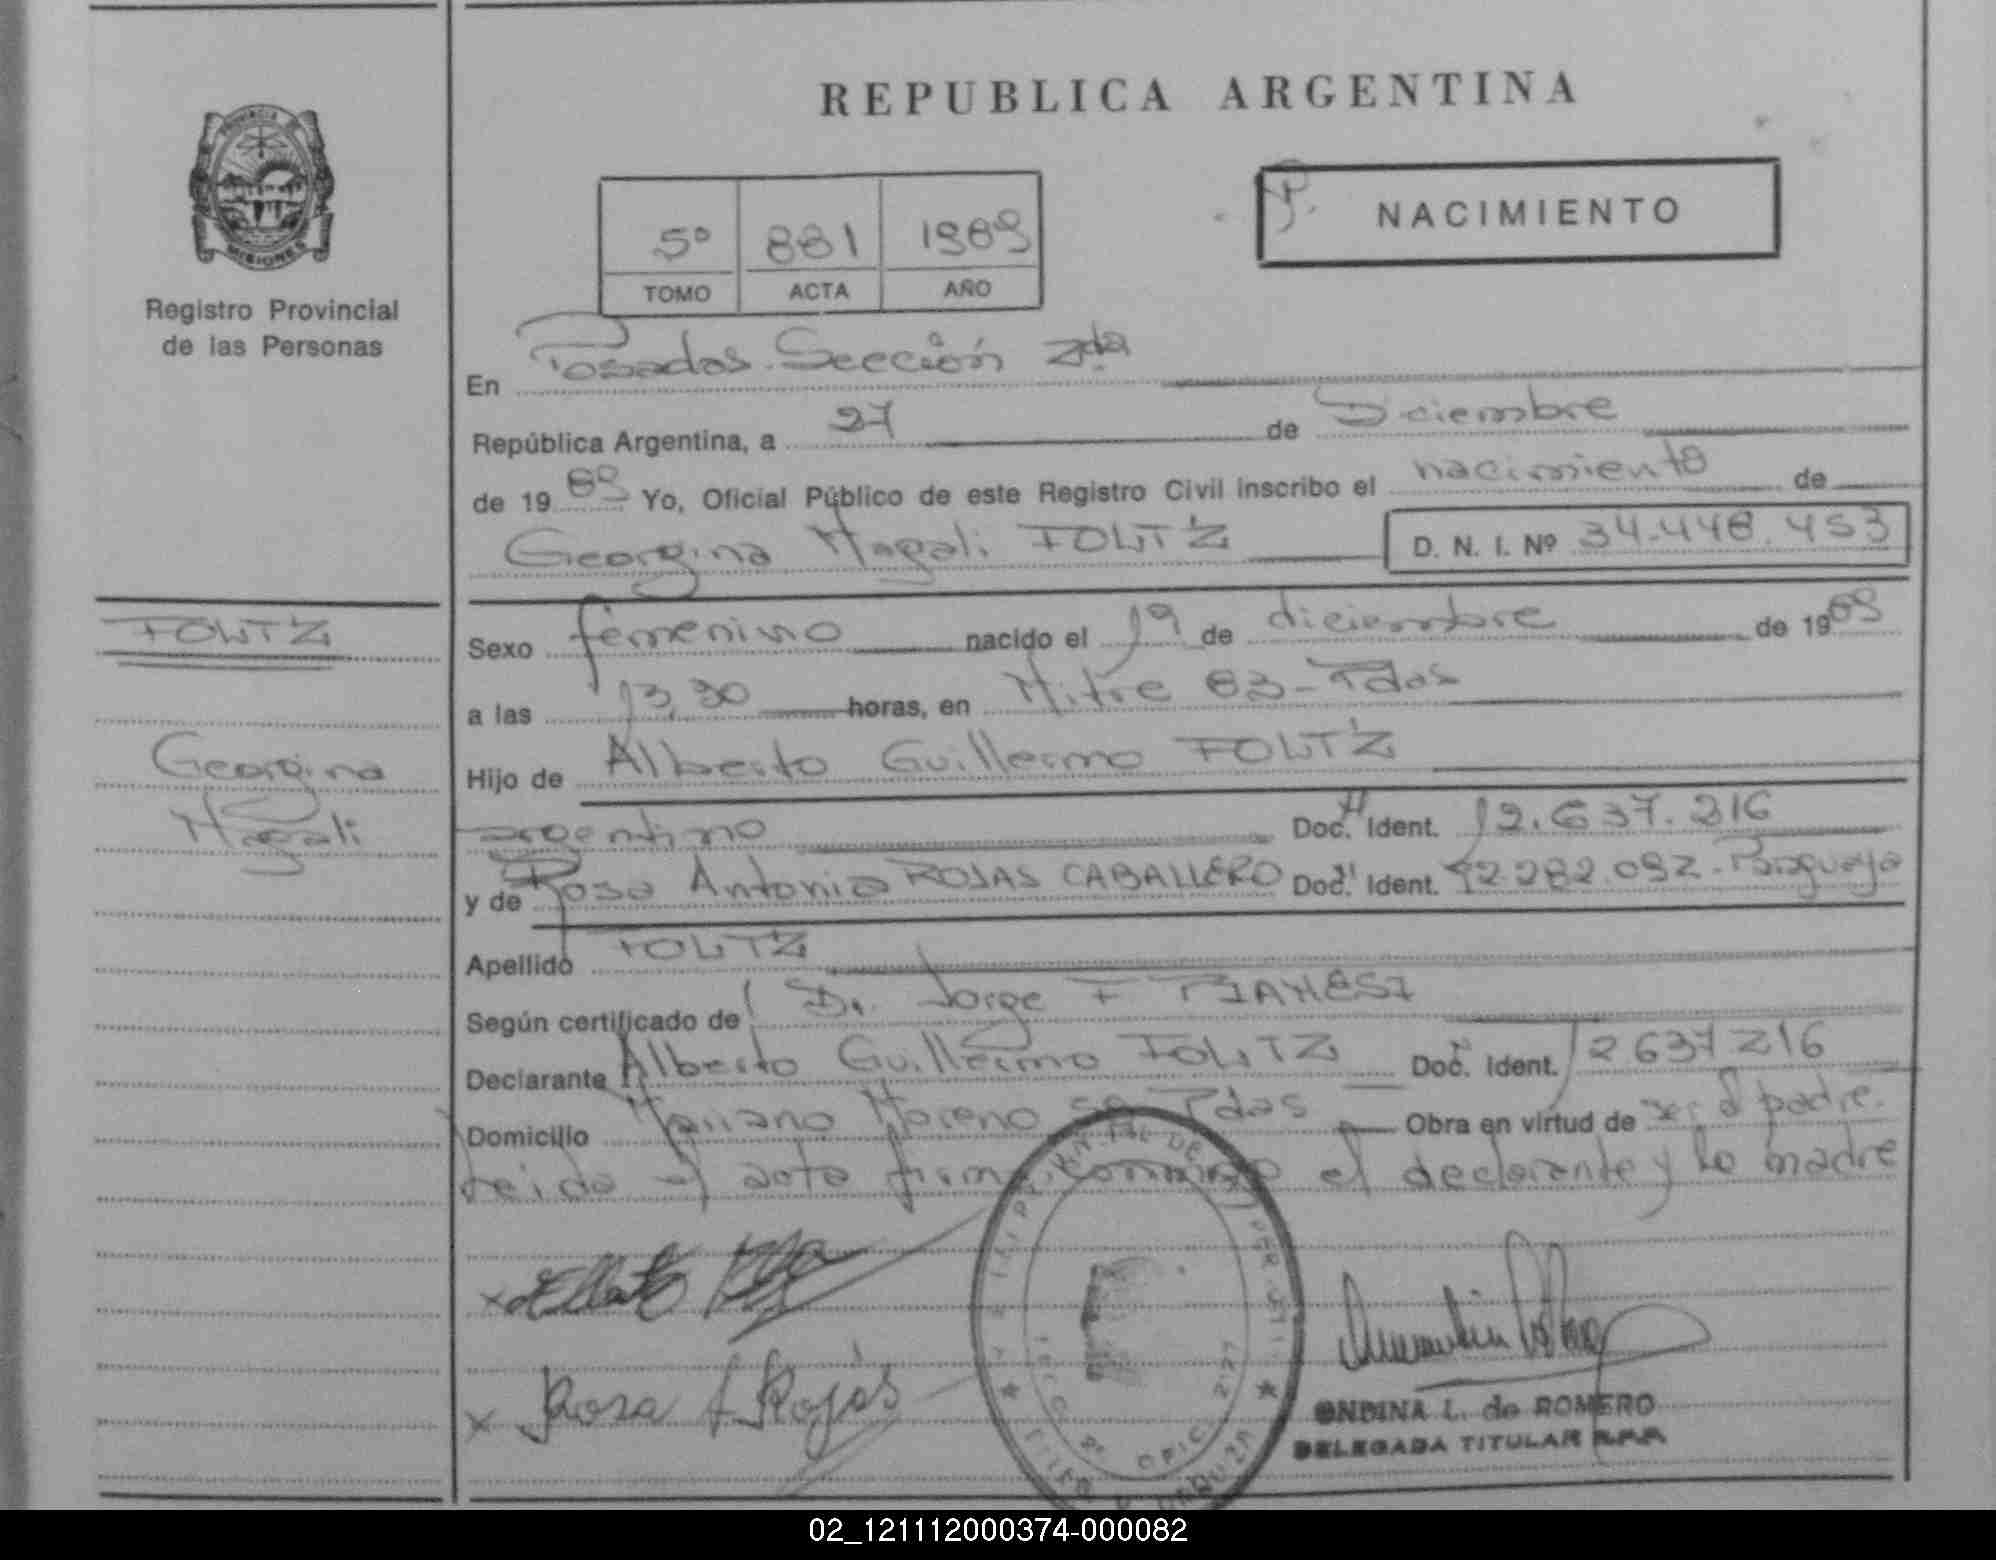 REPUBLICA ARGENTINA
PROVINCIA DE
MISIONES
Registro Provincial
de las Personas
NACIMIENTO
5º 881 1989
TOMO ACTA AÑO
En Posadas Sección 2da
República Argentina, a 27 de Diciembre
de 1989 Yo, Oficial Público de este Registro Civil inscribo el nacimiento de
Georgina Magali FOLTZ D. N. I. Nº 34.448.453
FOLTZ
Georgina
Magali
Sexo femenino nacido el 19 de diciembre de 1989
a las 13,30 horas, en Mitre 83-Pdas
Hijo de Alberto Guillermo FOLTZ
argentino Doc. Ident. 12.637.216
y de Rosa Antonia ROJAS CABALLERO Doc. Ident. 92.282.092-Paraguaya
Apellido FOLTZ
Según certificado de Dr. Jorge F
Declarante Alberto Guillermo FOLTZ Doc. Ident. 12637216
Domicilio Mariano Moreno Pdas Obra en virtud de ser el padre.
Leida el acta firma conmigo el declarante y la madre
x
x Rosa A Rojas
ONDINA L. de ROMERO
DELEGADA TITULAR R.P.P.
02_121112000374-000082